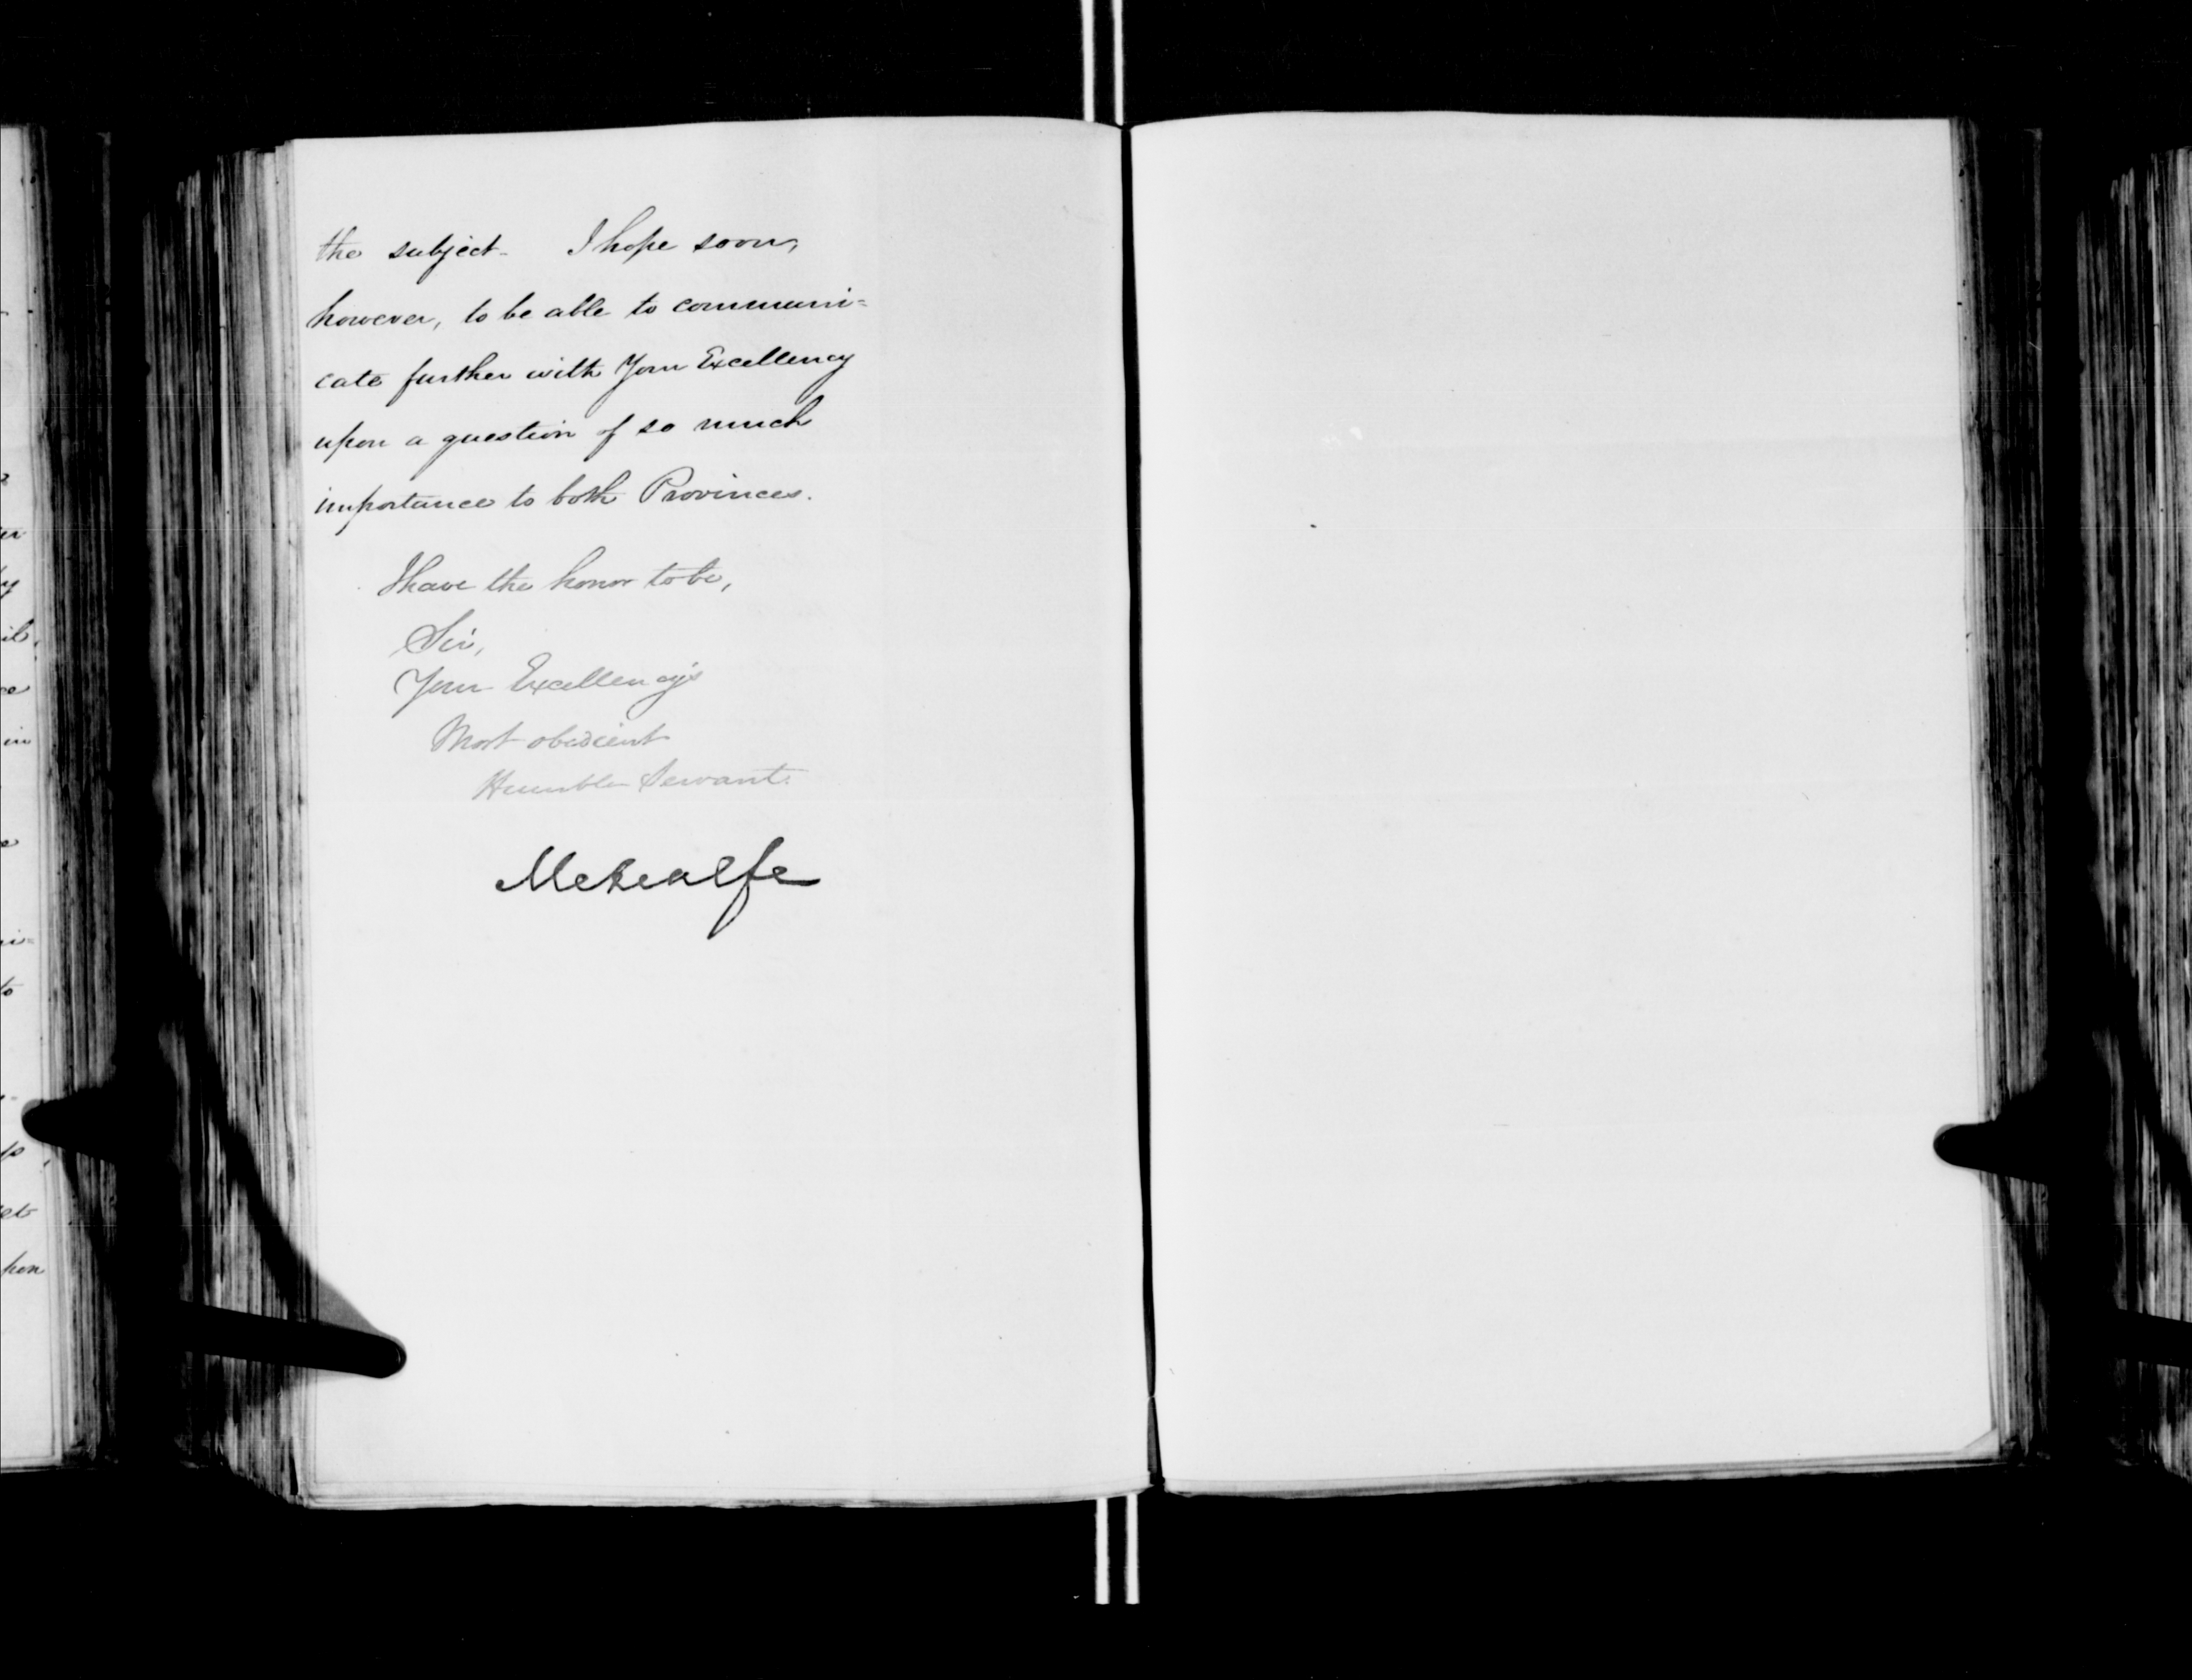 the subject. I hope soon,
however, to be able to communi=
cate further with Your Excellency
upon a question of so much
importance to both Provinces.
I have the honor to be,
Sir,
Your Excellency's
Most obedient
Humble Servant.
Metcalfe